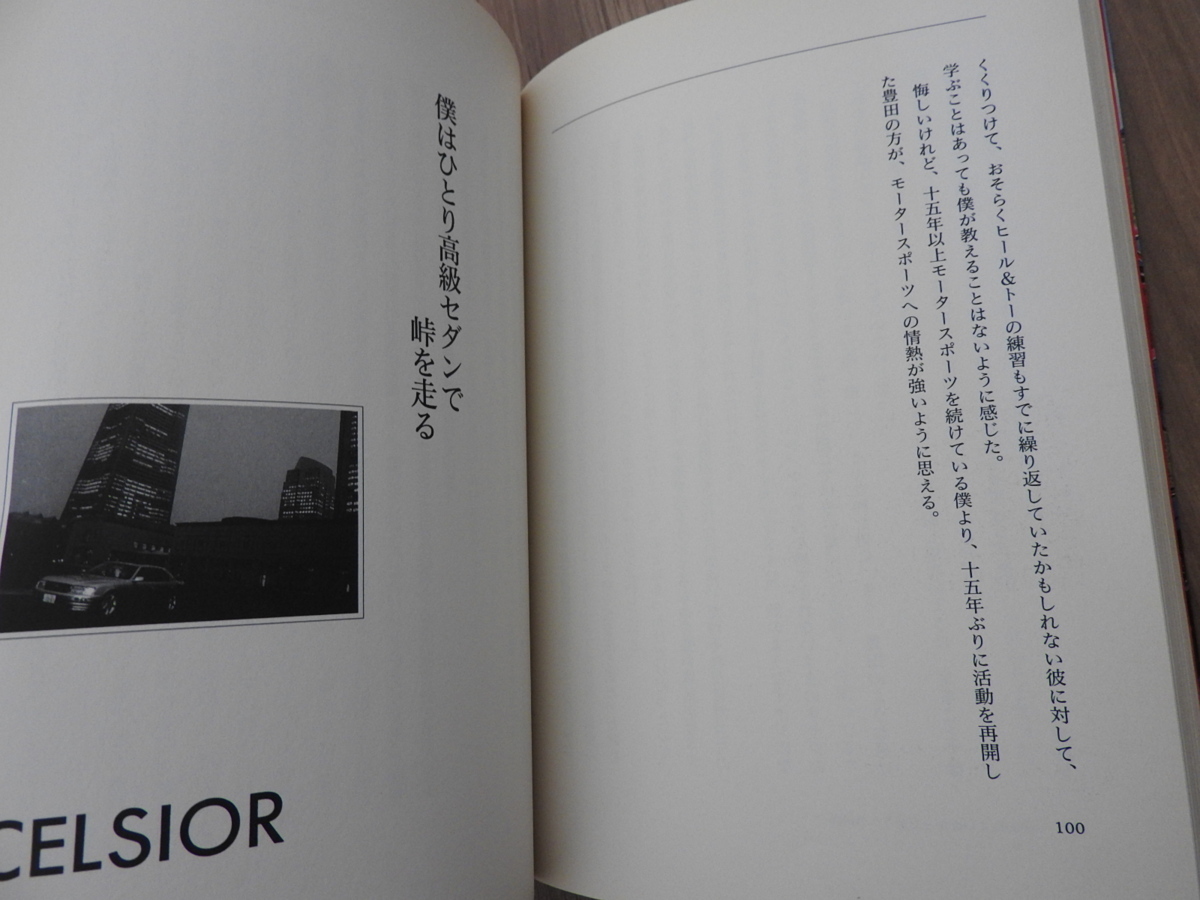 くくりつけて、おそらくヒール&トーの練習もすでに繰り返していたかもしれない彼に対して、
学ぶことはあっても僕が教えることはないように感じた。
悔しいけれど、十五年以上モータースポーツを続けている僕より、十五年ぶりに活動を再開し
た豊田の方が、モータースポーツへの情熱が強いように思える。
100
僕はひとり高級セダンで
峠を走る
CELSIOR